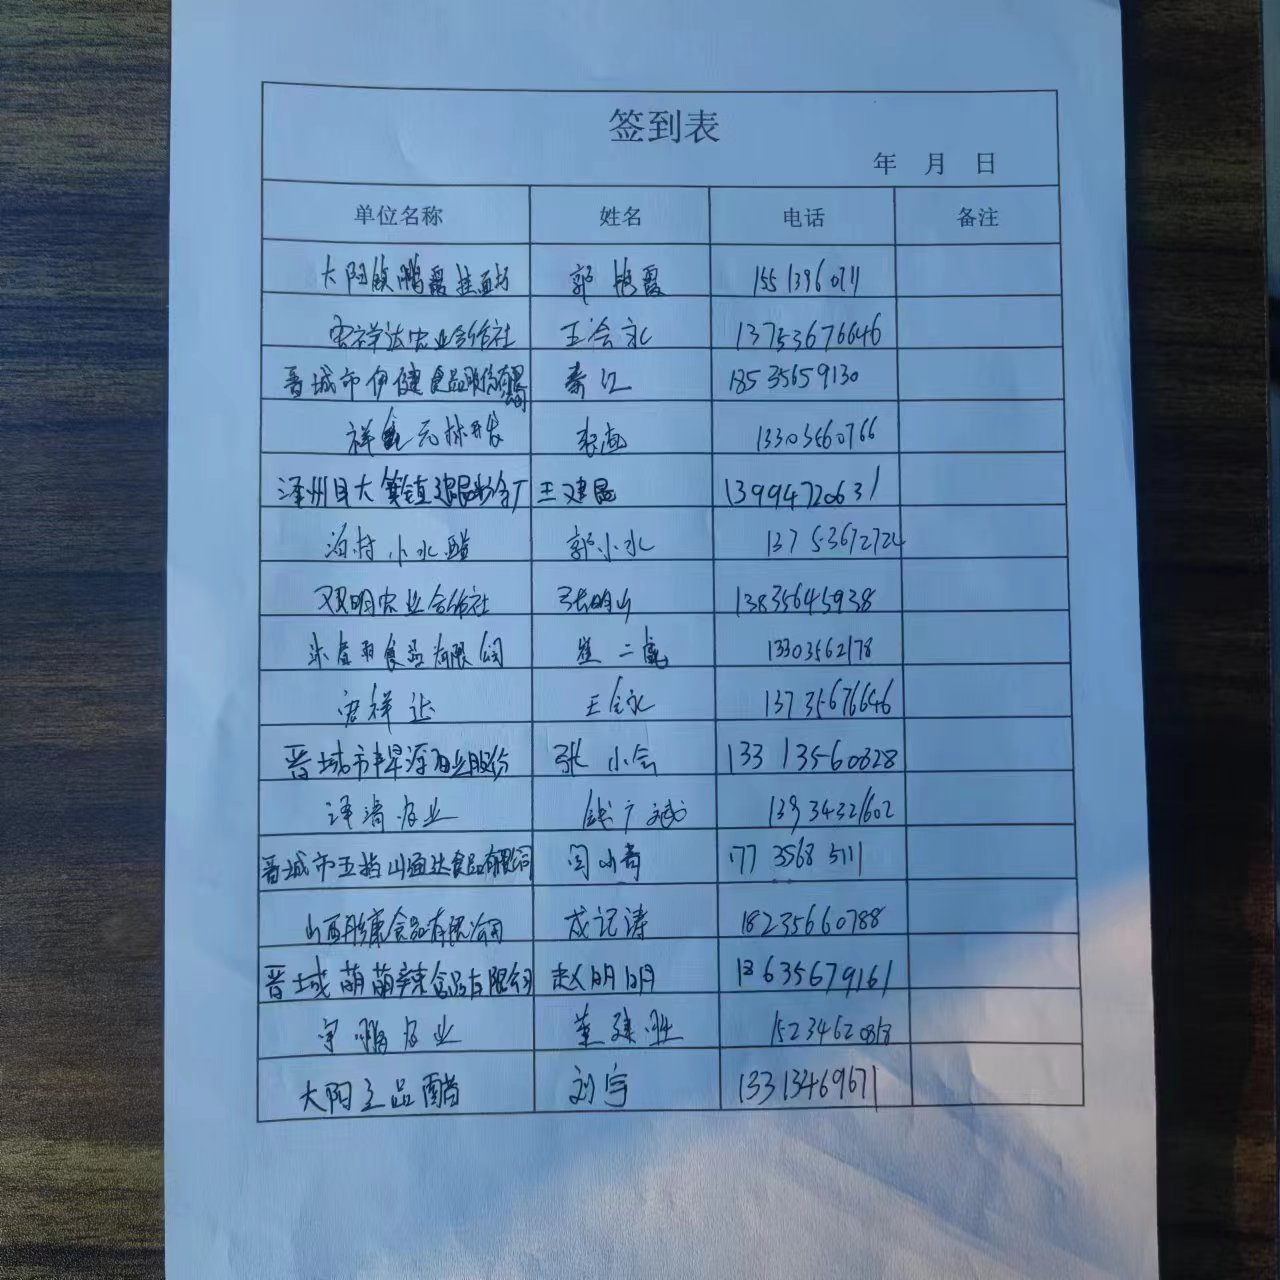 签到表
年 月 日
单位名称 姓名 电话 备注
大阳镇鹏霞挂面坊 郭鹏霞 15513960711
宏祥达农业合作社 王会永 13753676646
晋城市伊健食品股份有限公司 秦江 18535659130
祥 元 13303560766
泽州县大箕镇建昆粉条厂 王建昆 13994720631
泊村小水醋 郭小水 13753672724
双明农业合作社 张明山 13835645938
食品有限公司 崔二 13303562178
宏祥达 王会永 13735676646
晋城市 股份 张小会 13313560328
农业 钱广斌 13934321602
晋城市五 山通达食品有限公司 闫小青 17735685111
山西 康食品有限公司 成记涛 18235660788
晋城萌萌辣食品有限公司 赵明明 13635679161
宇鹏农业 董建胜 15234620818
大阳立品醋 刘宇 13313469671